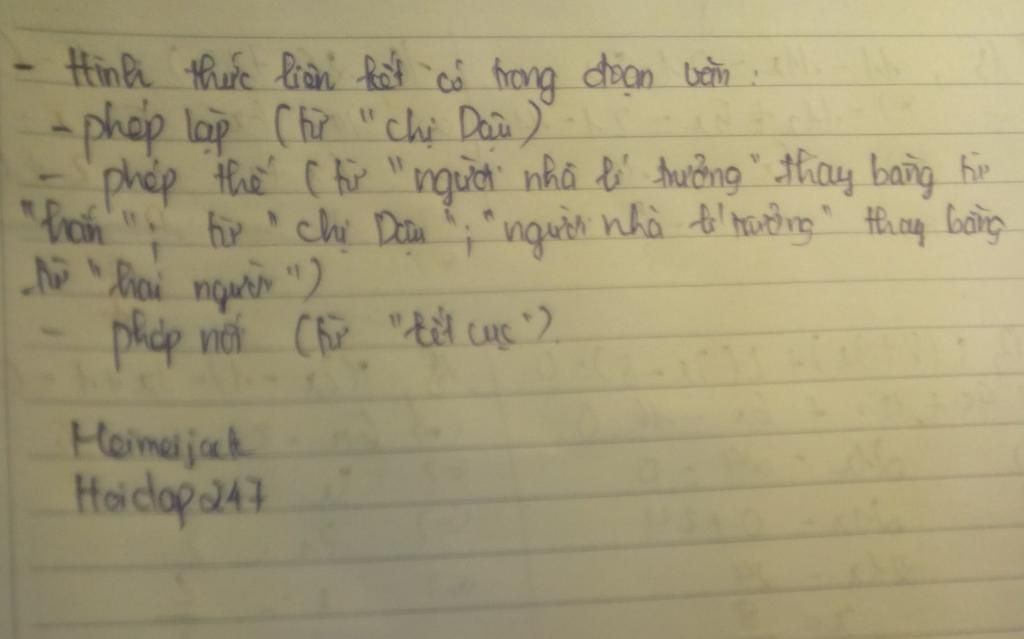 - Hình thức liên kết có trong đoạn văn:
- phép lặp (từ "chị Dậu)
- phép thế (từ "người nhà lí trưởng" thay bằng từ
"hắn"; từ "chị Dậu"; "người nhà lí trưởng" thay bằng
từ "hai người")
- phép nối (từ "kết cục")
Heimerjack
Hoidap247